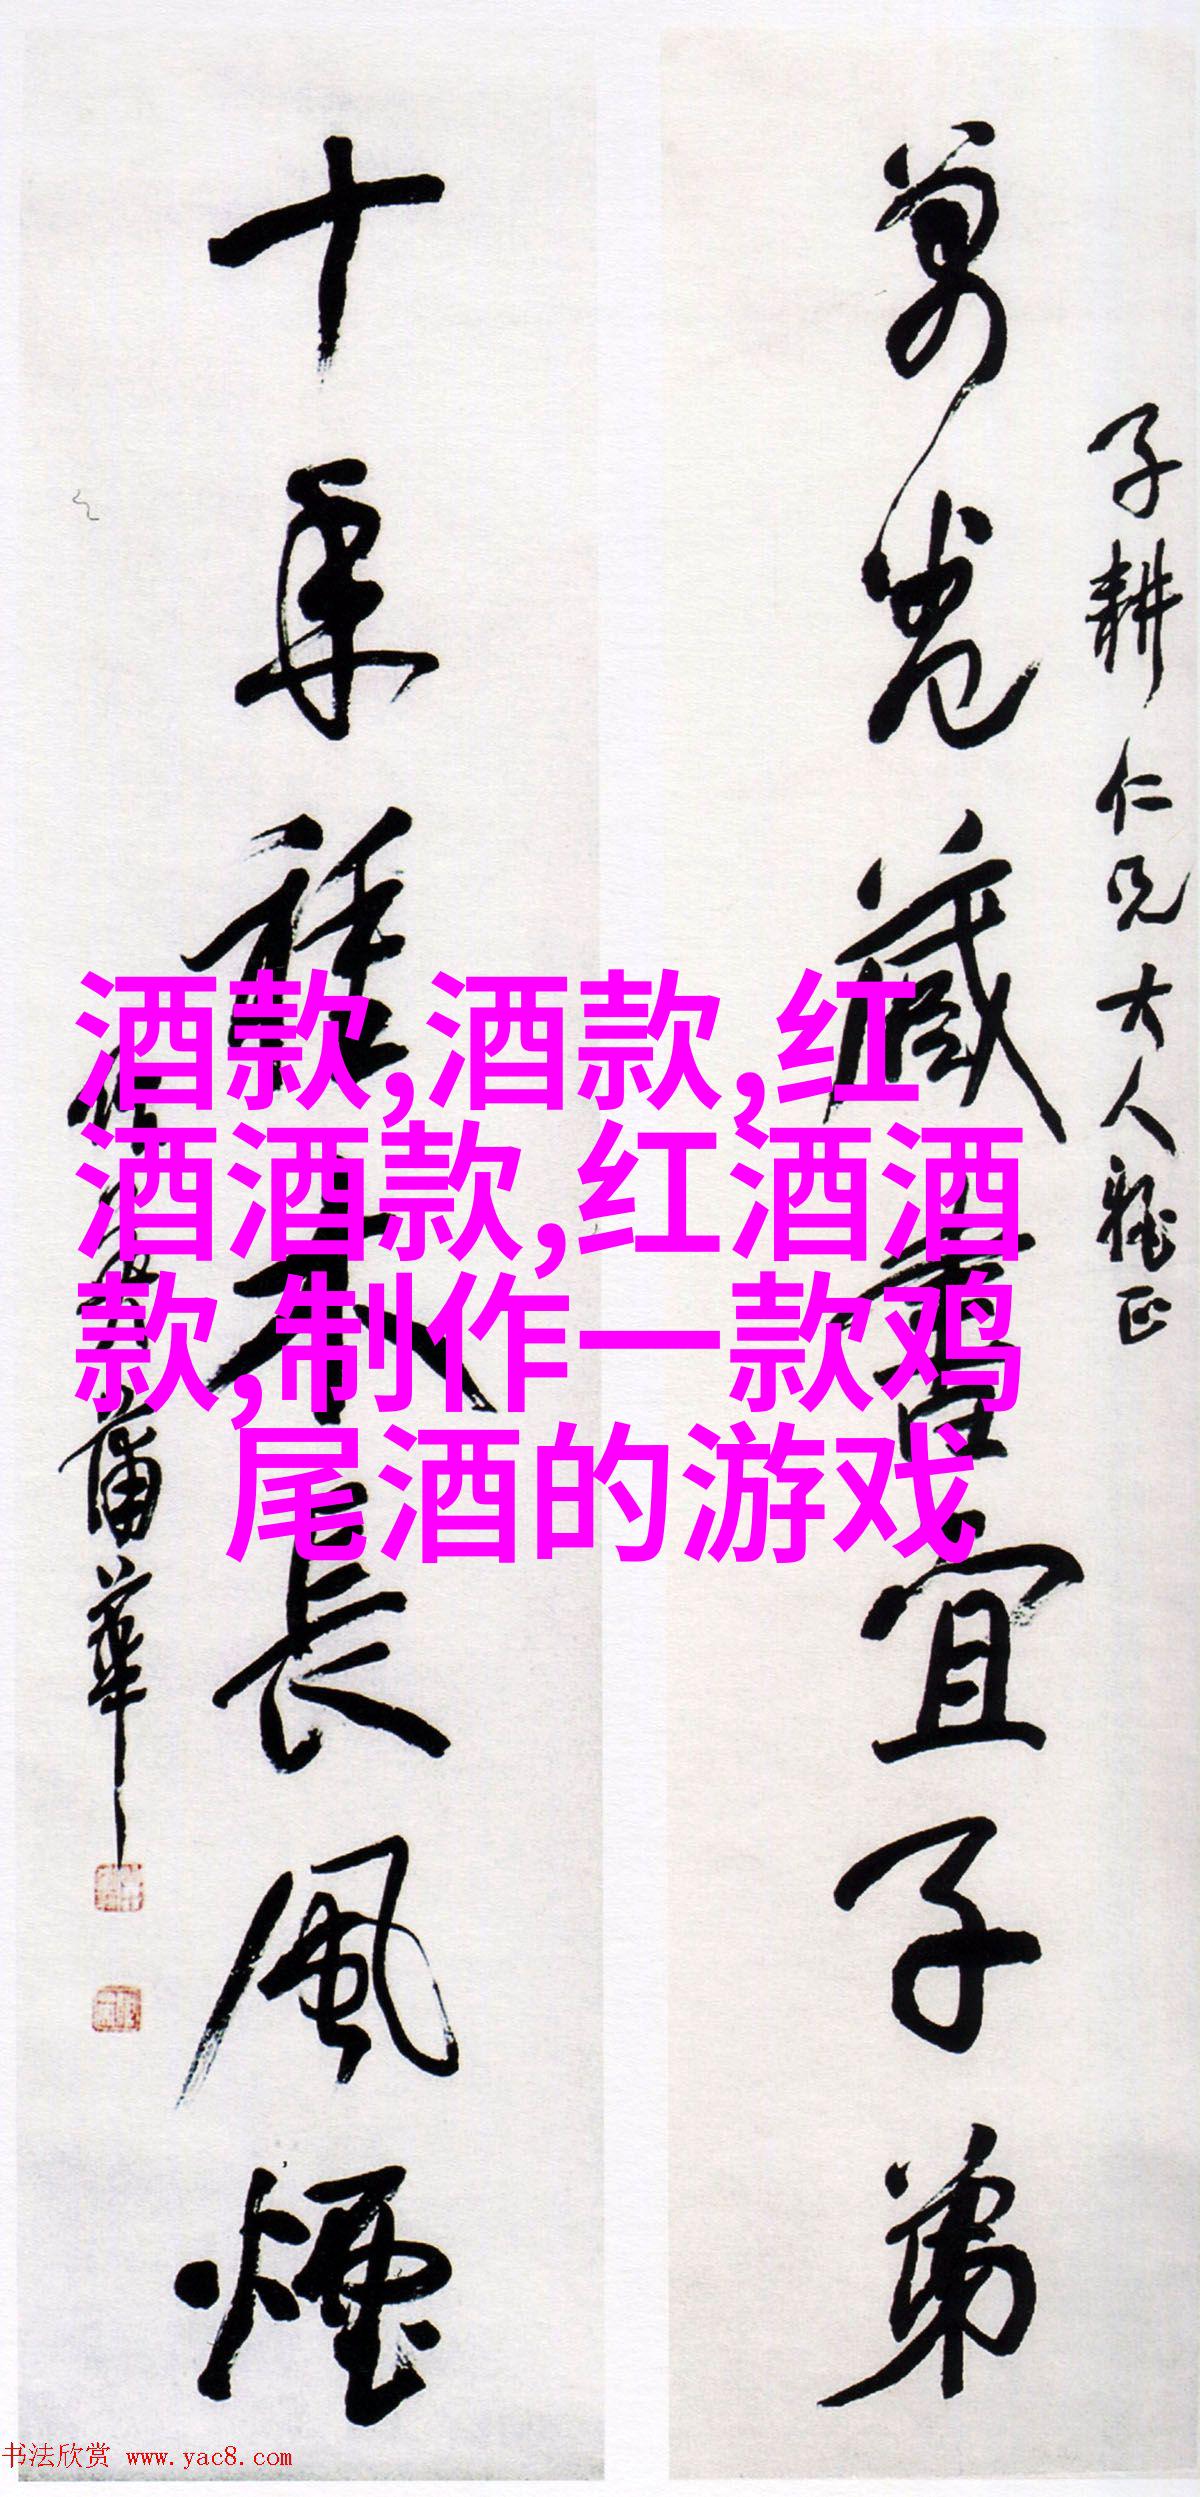 子耕仁兄大人雅正
萬卷藏書宜子弟
十年種木長風煙
蒲華
酒款,酒款,红
酒酒款,红酒酒
款,制作一款鸡
尾酒的游戏
书法欣赏 www.yac8.com